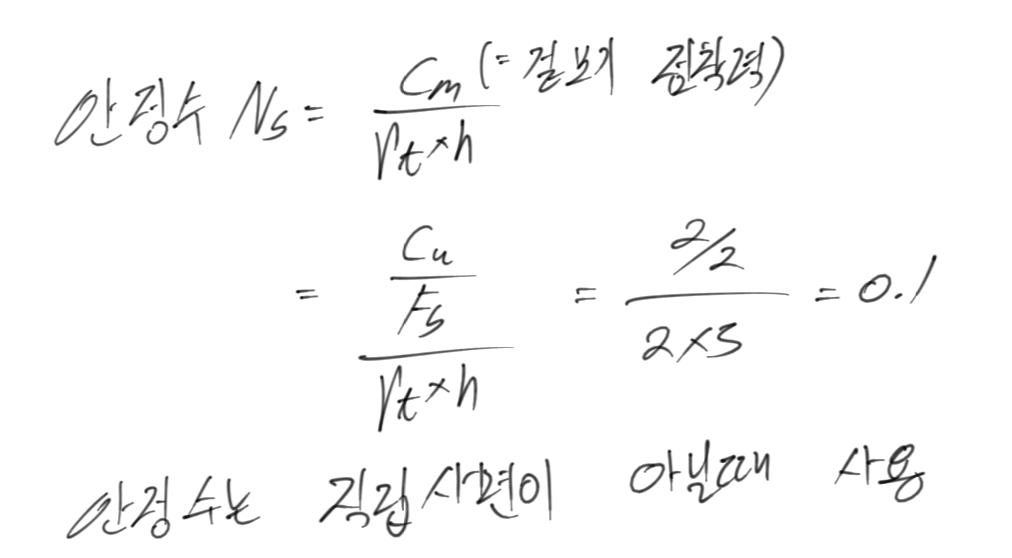 안정수 Ns = Cm (= 겉보기 점착력) / rt × h
= (Cu / Fs) / (rt × h) = (2/2) / (2 × 5) = 0.1
안정수는 직립사면이 아닐때 사용